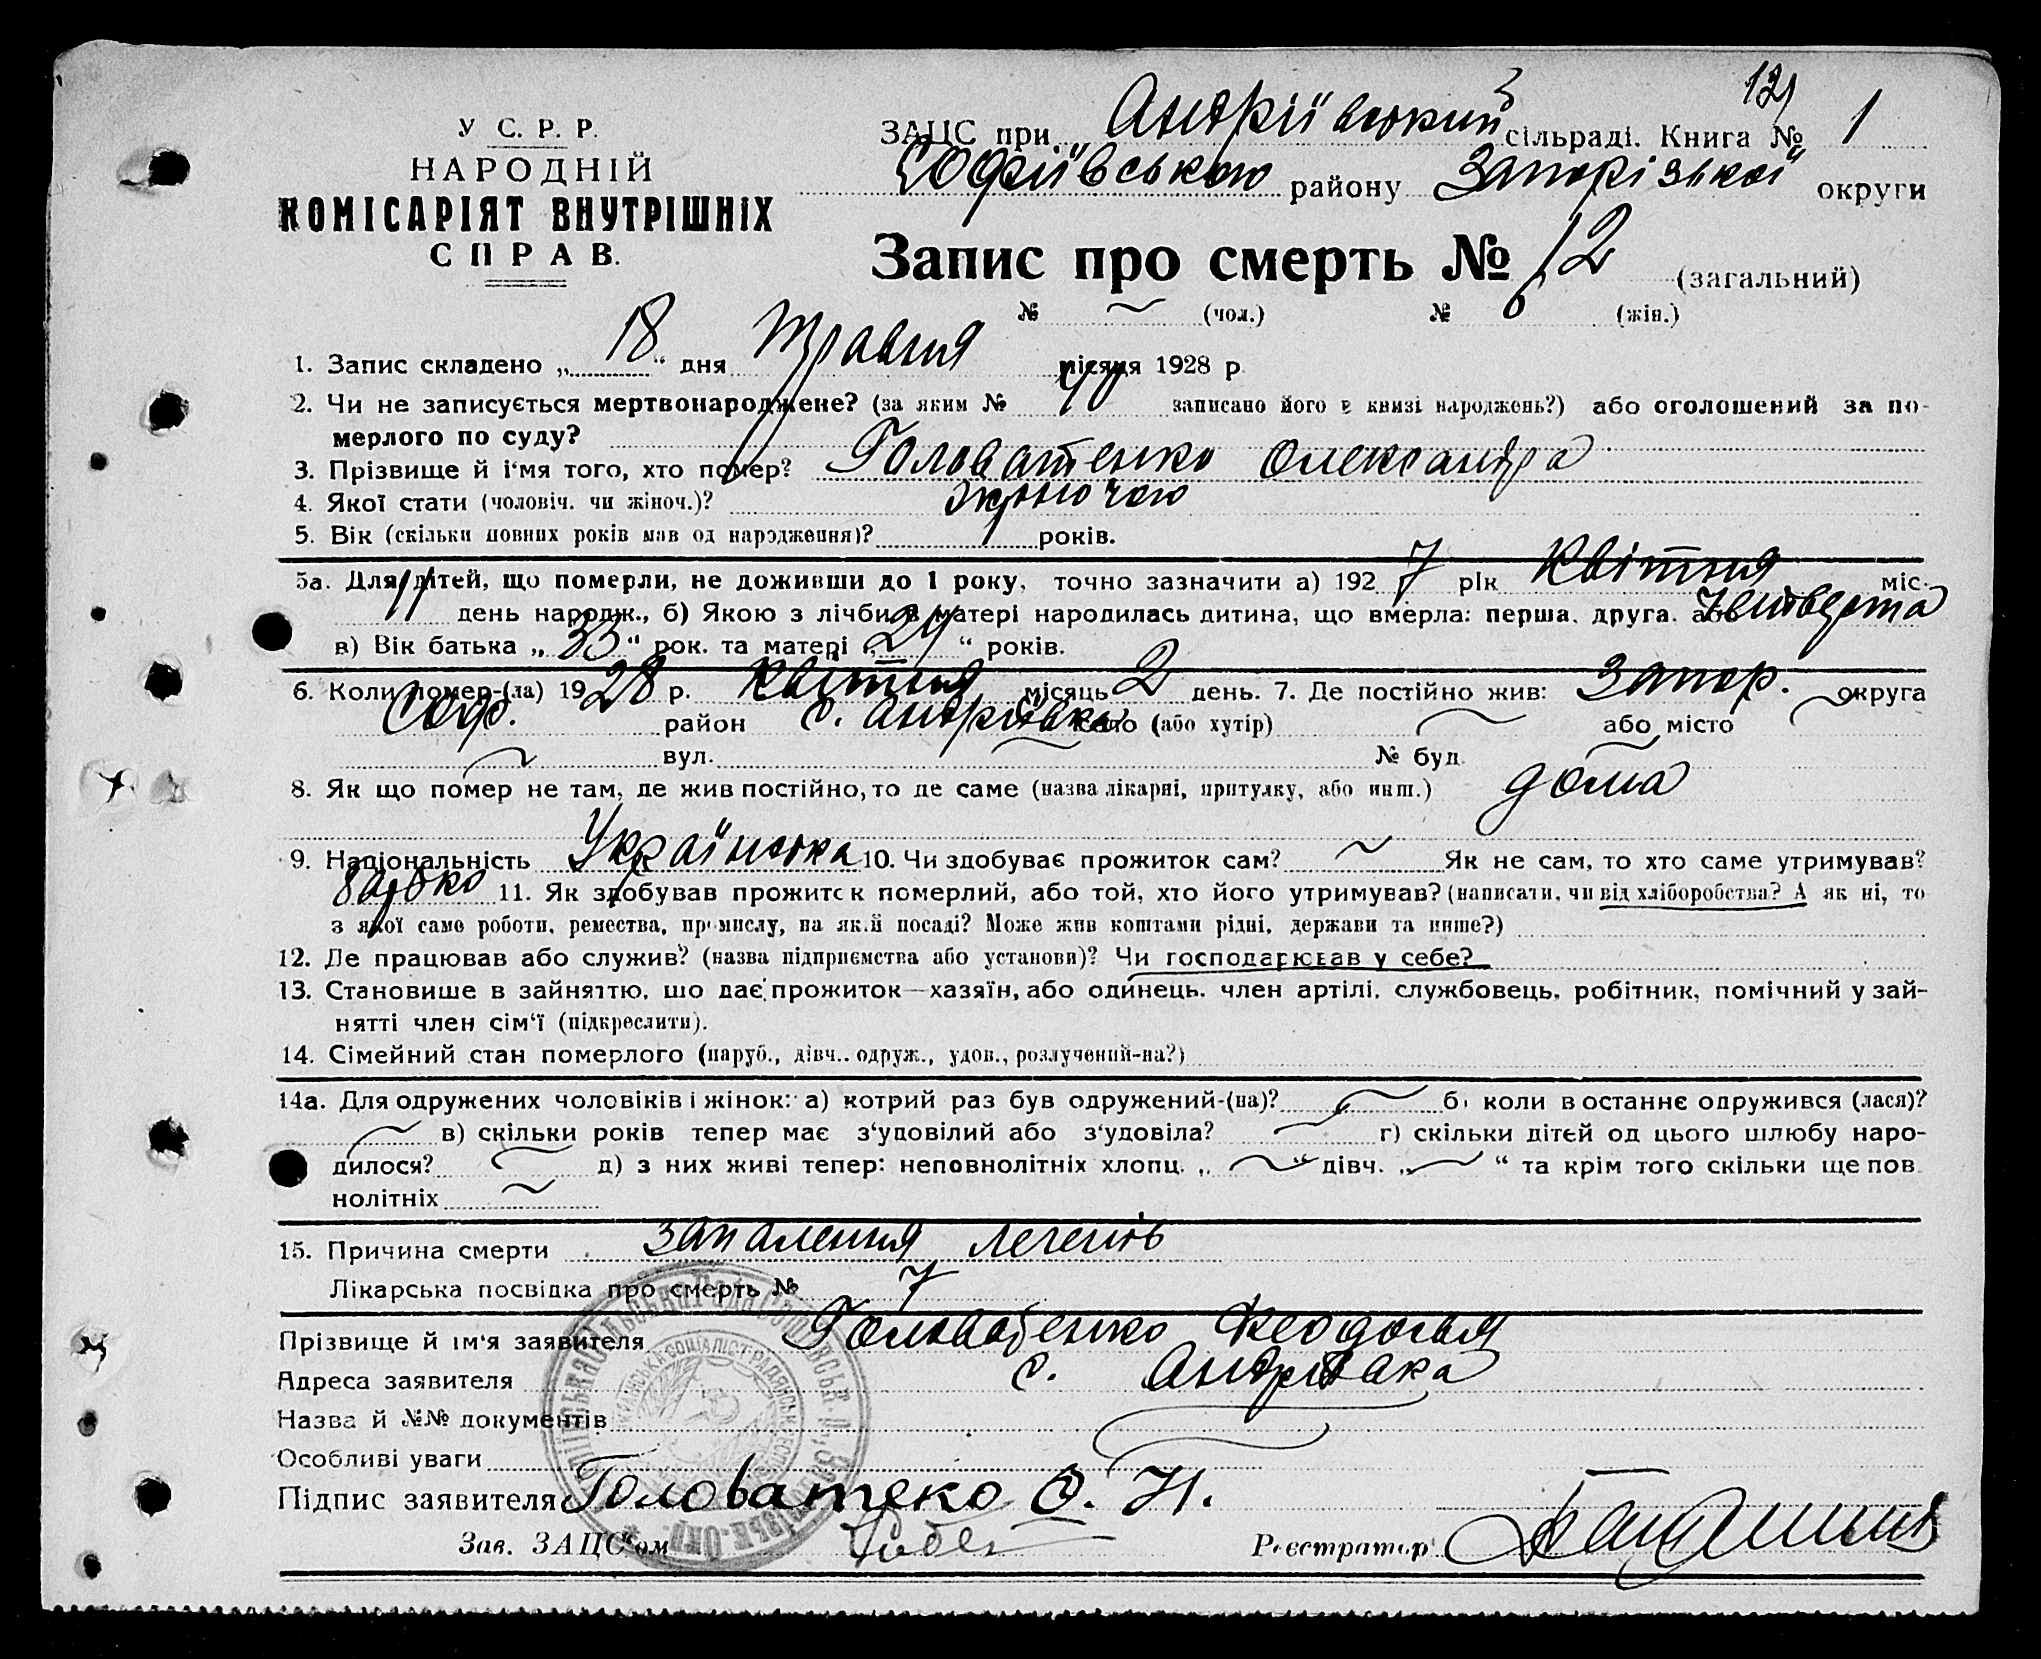 12
У С. Р. Р.
НАРОДНІЙ
КОМІСАРІЯТ ВНУТРІШНІХ
СПРАВ.
ЗАЦС при Андріївський сільраді. Книга № 1
Софіївською району Запорізької округи
Запис про смерть № 12 (загальний)
№ ~ (чол.) № 6 (жін.)
1. Запис складено „18“ дня Травня місяця 1928 р
2. Чи не записується мертвонароджене? (за яким № 40 записано його в книзі народжень?) або оголошений за по-
мерлого по суду?
3. Прізвище й і'мя того, хто помер? Головатенко Олександра
4. Якої стати (чоловіч. чи жіноч.)? жіночою
5. Вік (скільки повних років мав од народження)? років.
5а. Для дітей, що померли, не доживши до 1 року, точно зазначити а) 1927 рік Квітня міс.
11 день народж., б) Якою з лічби в матері народилась дитина, що вмерла: перша, друга, або четверта
в) Вік батька „33“ рок. та матері „29“ років.
6. Коли помер-(ла) 1928 р. Квітня місяць 2 день. 7. Де постійно жив: Запор. округа
Соф. район с. Андріївка село (або хутір) ~ або місто ~
~ вул. ~ № буд. ~
8. Як що помер не там, де жив постійно, то де саме (назва лікарні, притулку, або инш.) дома
9. Національність Українська 10. Чи здобуває прожиток сам? ~ Як не сам, то хто саме утримував?
батько 11. Як здобував прожиток померлий, або той, хто його утримував? (написати, чи від хліборобства? А як ні, то
з якої саме роботи, ремества, промислу, на якій посаді? Може жив коштами рідні, держави та инше?)
12. Де працював або служив? (назва підприємства або установи)? Чи господарював у себе?
13. Становище в зайняттю, що дає прожиток—хазяїн, або одинець, член артілі, службовець, робітник, помічний у зай-
нятті член сім'ї (підкреслити).
14. Сімейний стан померлого (паруб., дівч.. одруж., удов., розлучений-на?)
14а. Для одружених чоловіків і жінок: а) котрий раз був одружений-(на)? ~ б) коли в останнє одружився (лася)?
~ в) скільки років тепер має з'удовілий або з'удовіла? ~ г) скільки дітей од цього шлюбу наро-
дилося? ~ д) з них живі тепер: неповнолітніх хлопц. „~“ дівч. „~“ та крім того скільки ще пов
нолітніх ~
15. Причина смерти запалення легенів
Лікарська посвідка про смерть № 7
Прізвище й ім'я заявителя Головатенко Феодосья
Адреса заявителя с. Андріївка
Назва й №№ документів
Особливі уваги
Підпис заявителя Головатеко Ф. Н.
Зав. ЗАЦС'ом Реєстратор